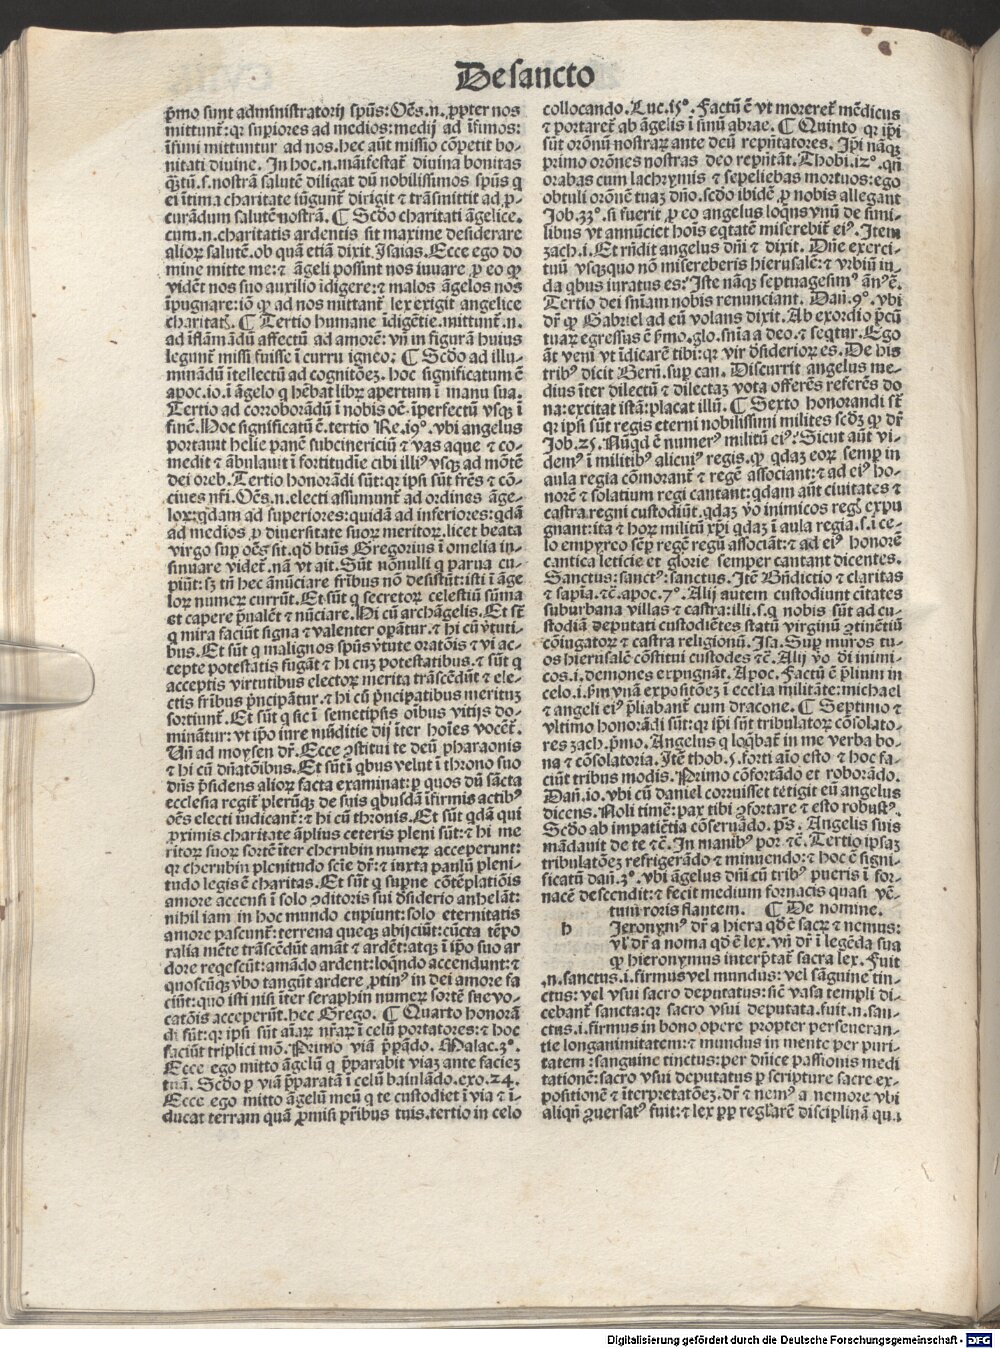 De sancto
p̄mo sunt administratorij spūs: Oēs.n.ꝓpter nos
mittunt̄: qꝛ supiores ad medios: medij ad īfimos:
īfimi mittuntur ad nos. hec aūt missio cōpetit bo-
nitati diuine. In hoc.n.māifestat̄ diuina bonitas
q̄ꝫtū.s.nostrā salutē diligat dū nobilissimos spūs q
ei ītima charitate iūgunt̄ dirigit ⁊ trāsmittit ad ꝓ-
curādum salutē nostrā. ¶ Scd̄o charitati āgelice.
cum.n.charitatis ardentis sit maxime desiderare
alioꝝ salutē. ob quā etiā dixit Isaias. Ecce ego do
mine mitte me: ⁊ āgeli possint nos iuuare ꝓ eo ꝙ
vidēt nos suo auxilio īdigere: ⁊ malos āgelos nos
īpugnare: iō ꝙ ad nos mittant̄ lex exigit angelice
charitatꝭ. ¶ Tertio humane īdigētie. mittunt̄.n.
ad īflāmādū affectū ad amorē: vn̄ in figurā huius
legunt̄ missi fuisse ī curru igneo: ¶ Scd̄o ad illu-
minādū ītellectū ad cognitōeꝫ. hoc significatum ē
apoc.io. ī āgelo q hēbat librꝫ apertum ī manu sua.
Tertio ad corroborādū ī nobis oē īperfectū vsqꝫ ī
finē. Hoc significatū ē.tertio Re.i9°. vbi angelus
portauit helie panē subcinericiū ⁊ vas aque ⁊ co-
medit ⁊ ābulauit ī fortitudīe cibi illiꝰ vsqꝫ ad mōtē
dei oreb. Tertio honorādi sūt: qꝛ ipsi sūt frēs ⁊ cō-
ciues nr̄i. Oēs.n.electi assumunt̄ ad ordines āge-
loꝝ: q̄dam ad superiores: quidā ad inferiores: qdā
ad medios ꝓ diuersitate suoꝝ meritoꝝ. licet beata
virgo suꝑ oēs sit. qd̄ btūs Gregorius ī omelia in-
sinuare videt̄. nā vt ait. Sūt nōnulli q parua cu-
piūt: sꝫ tn̄ hec ānūciare frībus nō desistūt: isti ī āge
loꝝ numeꝝ currūt. Et sūt q secretoꝝ celestiū sūma
et capere p̄ualēt ⁊ nūciare. Hi cū archāgelis. Et st̄
q mira faciūt signa ⁊ valenter oꝑātur. ⁊ hi cū v̄tuti-
bus. Et sūt q malignos spūs v̄tute oratōis ⁊ vi ac-
cepte potestatis fugāt ⁊ hi cuꝫ potestatibus. ⁊ sūt q
acceptis virtutibus electoꝝ merita trāscēdūt ⁊ ele-
ctis frībus p̄ncipātur. ⁊ hi cū p̄ncipatibus merituꝫ
sortiunt̄. Et sūt q sic ī semetipsis oībus vitijs do-
minātur: vt ip̄o iure mūditie dij īter hoīes vocēt̄.
Un̄ ad moysen dr̄. Ecce ꝯstitui te deū pharaonis
⁊ hi cū dn̄atōibus. Et sūt ī qbus velut ī throno suo
dn̄s p̄sidens alioꝝ facta examinat: ꝑ quos dū sācta
ecclesia regit̄ pleruqꝫ de suis qbusdā īfirmis actibꝰ
oēs electi iudicant̄: ⁊ hi cū thronis. Et sūt qdā qui
ꝓximis charitate āplius ceteris pleni sūt: ⁊ hi me
ritoꝝ suoꝝ sortē īter cherubin numeꝝ acceperunt:
qꝛ cherubin plenitudo scīe dr̄: ⁊ iuxta paulū pleni-
tudo legis ē charitas. Et sūt q supne cōtēplatiōis
amore accensi ī solo ꝯditoris sui dsiderio anhelāt:
nihil iam in hoc mundo cupiunt: solo eternitatis
amore pascunt̄: terrena queqꝫ abijciūt: cūcta tēpo
ralia mēte trāscēdūt amāt ⁊ ardēt: atqꝫ ī ip̄o suo ar
dore reqescūt: amādo ardent: loq̄ndo accendunt: ⁊
quoscūqꝫ v̄bo tangūt ardere ꝓtinꝰ in dei amore fa
ciūt: quo isti nisi īter seraphin numeꝝ sortē sue vo-
catōis acceperūt. hec Grego. ¶ Quarto honorā
di sūt: qꝛ ipsi sūt aīaꝝ nr̄aꝝ ī celū portatores: ⁊ hoc
faciūt triplici mō. Primo viā p̄ꝑādo. Malac.3°.
Ecce ego mitto āgelū q p̄parabit viaꝫ ante facieꝫ
tuā. Scd̄o ꝑ viā p̄paratā ī celū baiulādo. exo.24.
Ecce ego mitto āgelū meū q te custodiet ī via ⁊ ī-
ducat terram quā ꝓmisi p̄ribus tuis. tertio in celo
collocando. Luc.i5°. Factū ē vt moreret̄ mēdicus
⁊ portaret̄ ab āgelis ī sinū abrae. ¶ Quinto qꝛ ip̄i
sūt orōnū nostraꝝ ante deū rep̄ntatores. Ip̄i nāqꝫ
primo orōnes nostras deo rep̄ntāt. Thobi.i2°. qn̄
orabas cum lachrymis ⁊ sepeliebas mortuos: ego
obtuli orōnē tuaꝫ dn̄o. scd̄o ibidē ꝓ nobis allegant
Job.33°. si fuerit ꝓ eo angelus loq̄ns vnū de simi-
libus vt annūciet hoīs eqtatē miserebit̄ eiꝰ. Item
zach.i. Et rn̄dit angelus dn̄i ⁊ dixit. Dn̄e exerci-
tuū vsqꝫquo nō misereberis hierusalē: ⁊ vrbiū iu-
da qbus iratus es: Iste nāqꝫ septuagesimꝰ ānꝰ ē.
Tertio dei sniam nobis renunciant. Dan̄.9°. vbi
dr̄ ꝙ Gabriel ad eū volans dixit. Ab exordio p̄cū
tuaꝝ egressus ē p̄mo.glo.snīa a deo. ⁊ seqtur. Ego
āt veni vt īdicarē tibi: qꝛ vir dsiderioꝝ es. De his
tribꝰ dicit Bern̄. sup can. Discurrit angelus me-
dius īter dilectū ⁊ dilectaꝫ vota offerēs referēs do
na: excitat istā: placat illū. ¶ Sexto honorandi st̄
qꝛ ipsi sūt regis eterni nobilissimi milites scdꝫ ꝙ dr̄
Job.25. Nūqd ē numerꝰ militū eiꝰ: Sicut aūt vi-
demꝰ ī militibꝰ alicuiꝰ regis. ꝙ qdaꝫ eoꝝ semꝑ in
aula regia cōmorant̄ ⁊ regē associant: ⁊ ad eiꝰ ho-
norē ⁊ solatium regi cantant: qdam aūt ciuitates ⁊
castra regni custodiūt. qdaꝫ v̄o inimicos regꝭ expu
gnant: ita ⁊ hoꝝ militū xp̄i qdaꝫ ī aula regia.s.i ce-
lo empyreo sēꝑ regē regū associāt: ⁊ ad eiꝰ honorē
cantica leticie et glorie semper cantant dicentes.
Sanctus: sanctꝰ: sanctus. Itē Bn̄dictio ⁊ claritas
⁊ sapīa.⁊c̄. apoc.7°. Alij autem custodiunt cītates
suburbana villas ⁊ castra: illi.s.q nobis sūt ad cu-
stodiā deputati custodiētes statū virginū ꝯtinētiū
cōiugatoꝝ ⁊ castra religionū. Isa. Suꝑ muros tu-
os hierusalē cōstitui custodes ⁊c̄. Alij v̄o di inimi-
cos.i.demones expugnāt. Apoc. Factū ē p̄lium in
celo.i.p̄m vnā expositōeꝫ ī eccl'ia militāte: michael
⁊ angeli eiꝰ p̄liabant̄ cum dracone. ¶ Septimo ⁊
vltimo honorādi sūt: qꝛ ip̄i sūt tribulatoꝝ cōsolato-
res zach.p̄mo. Angelus q loq̄bat̄ in me verba bo-
na ⁊ cōsolatoria. Itē thob.5. forti aīo esto ⁊ hoc fa-
ciūt tribus modis. Primo cōfortādo et roborādo.
Dan̄.io. vbi cū daniel corruisset tetigit eū angelus
dicens. Noli timē: pax tibi ꝯfortare ⁊ esto robustꝰ.
Scd̄o ab impatiētia cōseruādo. ps̄. Angelis suis
mādauit de te ⁊c̄. In manibꝰ por.⁊c̄. Tertio ipsaꝫ
tribulatōeꝫ refrigerādo ⁊ minuendo: ⁊ hoc ē signi-
ficatū dan̄.3°. vbi āgelus dn̄i cū tribꝰ pueris ī for-
nacē descendit: ⁊ fecit medium fornacis quasi vē-
tum roris flantem. ¶ De nomine.
h Jeronymꝰ dr̄ a hiera qd̄ ē sacꝝ ⁊ nemus:
vl' dr̄ a noma qd̄ ē lex. vn̄ dr̄ ī legēda sua
ꝙ hieronymus interp̄tat̄ sacra lex. Fuit
.n.sanctus.i.firmus vel mundus: vel sāguine tin-
ctus: vel vsui sacro deputatus: sic̄ vasa templi di-
cebant̄ sancta: qꝛ sacro vsui deputata. fuit.n.san-
ctus.i.firmus in bono opere propter perseueran-
tie longanimitatem: ⁊ mundus in mente per puri-
tatem: sanguine tinctus: per dn̄ice passionis medi
tationē: sacro vsui deputatus ꝑ scripture sacre ex-
positionē ⁊ īterpretatōeꝫ. dr̄ ⁊ nemꝰ a nemore vbi
aliqn̄ ꝯuersatꝰ fuit: ⁊ lex ꝓꝑ regl'arē disciplinā qu.i
Digitalisierung gefördert durch die Deutsche Forschungsgemeinschaft - DFG